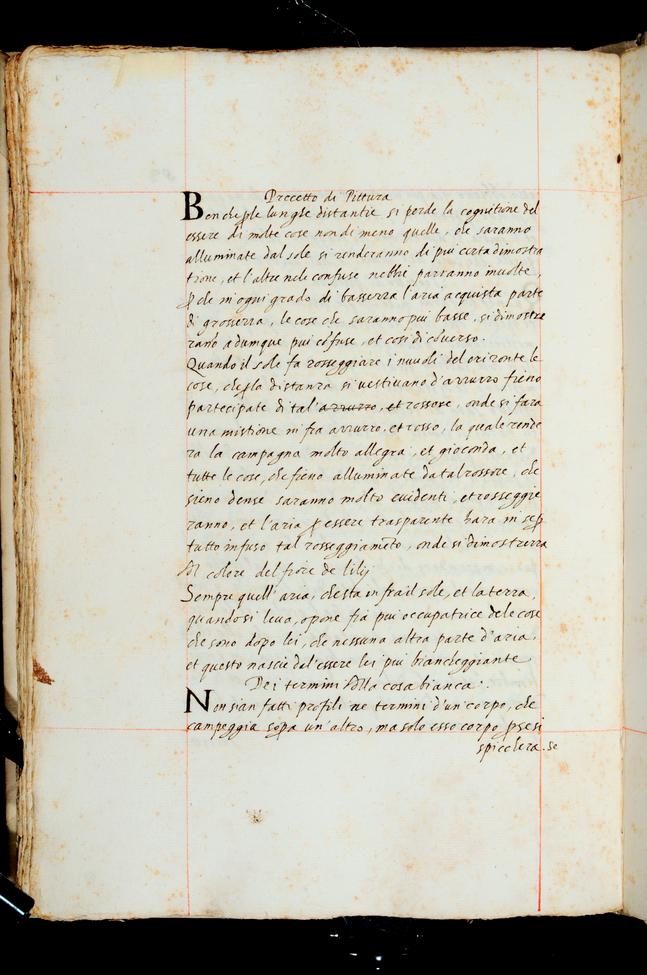 Precetto di Pittura
Benche ꝑ le lunghe distantie si perde la cognitione del
essere di molte cose non di meno quelle, che saranno
alluminate dal sole si renderanno di piu certa dimostra
tione, et l'altre nele confuse nebbie parranno inuolte,
ꝑche in ogni grado di bassezza l'aria acquista parte
di grossezza, le cose che saranno piu basse, si dimostre
rano adumque piu cōfuse, et cosi di cōuerso.
Quando il sole fa rosseggiare i nuuoli del orizonte le
cose, che ꝑ la distanza si uestiuano d'azzurro fieno
partecipate di tal' azzurro, et rossore, onde si fara
una mistione in fra azzurro, et rosso, la quale rende
ra la campagna molto allegra, et gioconda, et
tutte le cose, che fieno alluminate da tal rossore, che
sieno dense saranno molto euidenti, et rosseggie
ranno, et l'aria ꝑ essere trasparente hara in seꝑ
tutto infuso tal rosseggiamēto, onde si dimostrerra
del colore del fiore de lilij
Sempre quell' aria, che sta in fra il sole, et la terra,
quando si leua, o pone fia piu occupatrice dele cose
che sono dopo lei, che nessuna altra parte d'aria,
et questo nascie dal'essere lei piu biancheggiante
De i termini della cosa bianca.
Non sian fatti profili ne termini d'un corpo, che
campeggia soꝑa un' altro, ma solo esso corpo ꝑ se si
spicchera. se